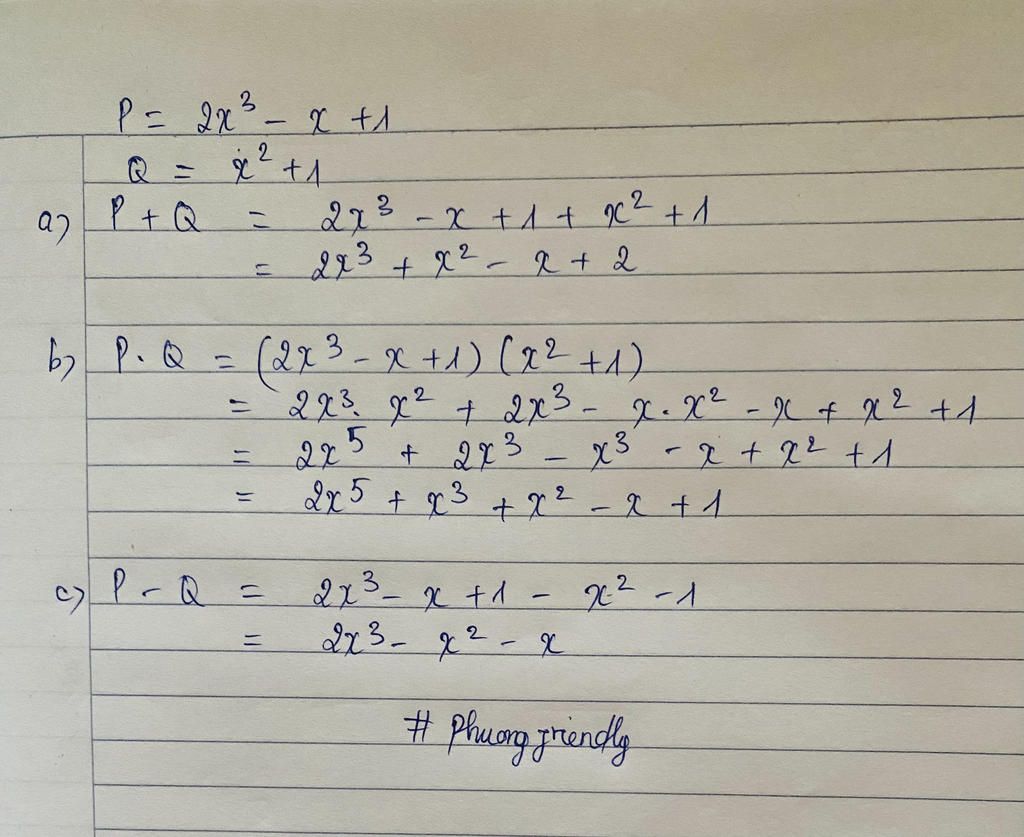 P = 2x³ - x + 1
Q = x² + 1
a) P + Q = 2x³ - x + 1 + x² + 1
= 2x³ + x² - x + 2
b) P . Q = (2x³ - x + 1) (x² + 1)
= 2x³. x² + 2x³ - x . x² - x + x² + 1
= 2x⁵ + 2x³ - x³ - x + x² + 1
= 2x⁵ + x³ + x² - x + 1
c) P - Q = 2x³ - x + 1 - x² - 1
= 2x³ - x² - x
# Phuong friendly